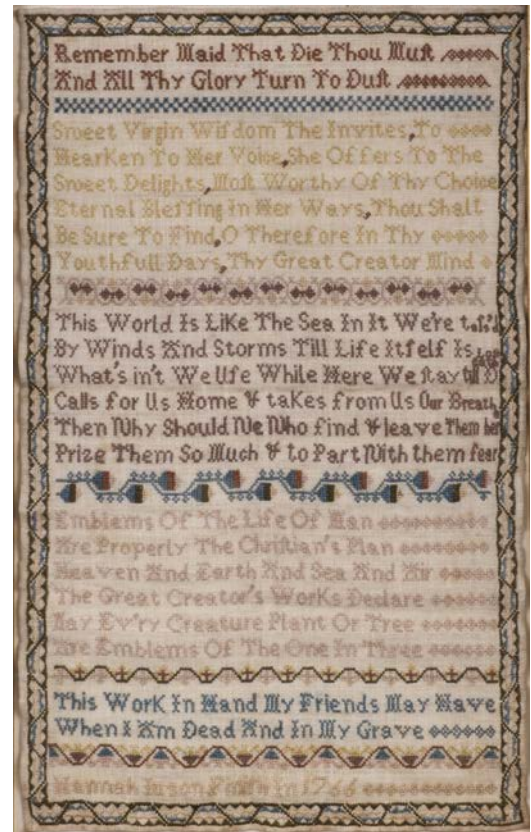 Remember Maid That Die Thou Muſt
And All Thy Glory Turn To Duſt
Sweet Virgin Wiſdom The Invites, To
HearKen To Her Voice, She Offers To The
Sweet Delights, Moſt Worthy Of Thy Choice
Eternal Bleſſing In Her Ways, Thou Shalt
Be Sure To Find, O Therefore In Thy
Youthfull Days, Thy Great Creator Mind
This World Is LiKe The Sea In It We're toſs'd
By Winds And Storms Till Life Itſelf Is
What's in't We Uſe While Here We ſtay till
Calls for Us Home & taKes from Us Our Breath
Then Why Should We Who find & leave Them her
Prize Them So Much & to Part With them fear
Emblems Of The Life Of Man
Are Properly The Chriſtian's Plan
Heaven And Earth And Sea And Air
The Great Creator's WorKs Declare
Nay Ev'ry Creature Plant Or Tree
Are Emblems Of The One In Three
This WorK In Hand My Friends May Have
When I Am Dead And In My Grave
Hannah In 1766